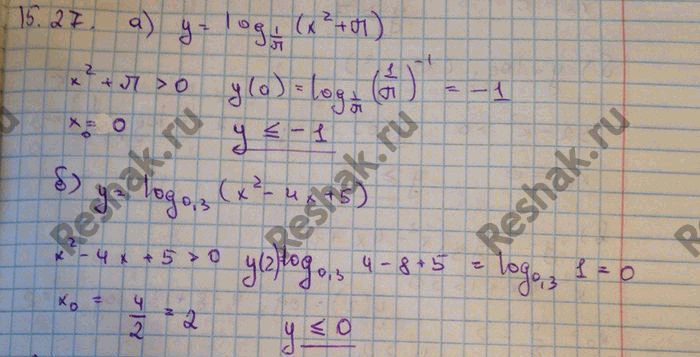 15.27. а) y = log_{1/π} (x² + π)
x² + π > 0   y(0) = log_{1/π} (1/π)^{-1} = -1
x₀ = 0   y ≤ -1
б) y = log_{0,3} (x² - 4x + 5)
x² - 4x + 5 > 0   y(2) log_{0,3} 4 - 8 + 5 = log_{0,3} 1 = 0
x₀ = 4/2 = 2   y ≤ 0
Reshak.ru
Reshak.ru
Reshak.ru
Reshak.ru